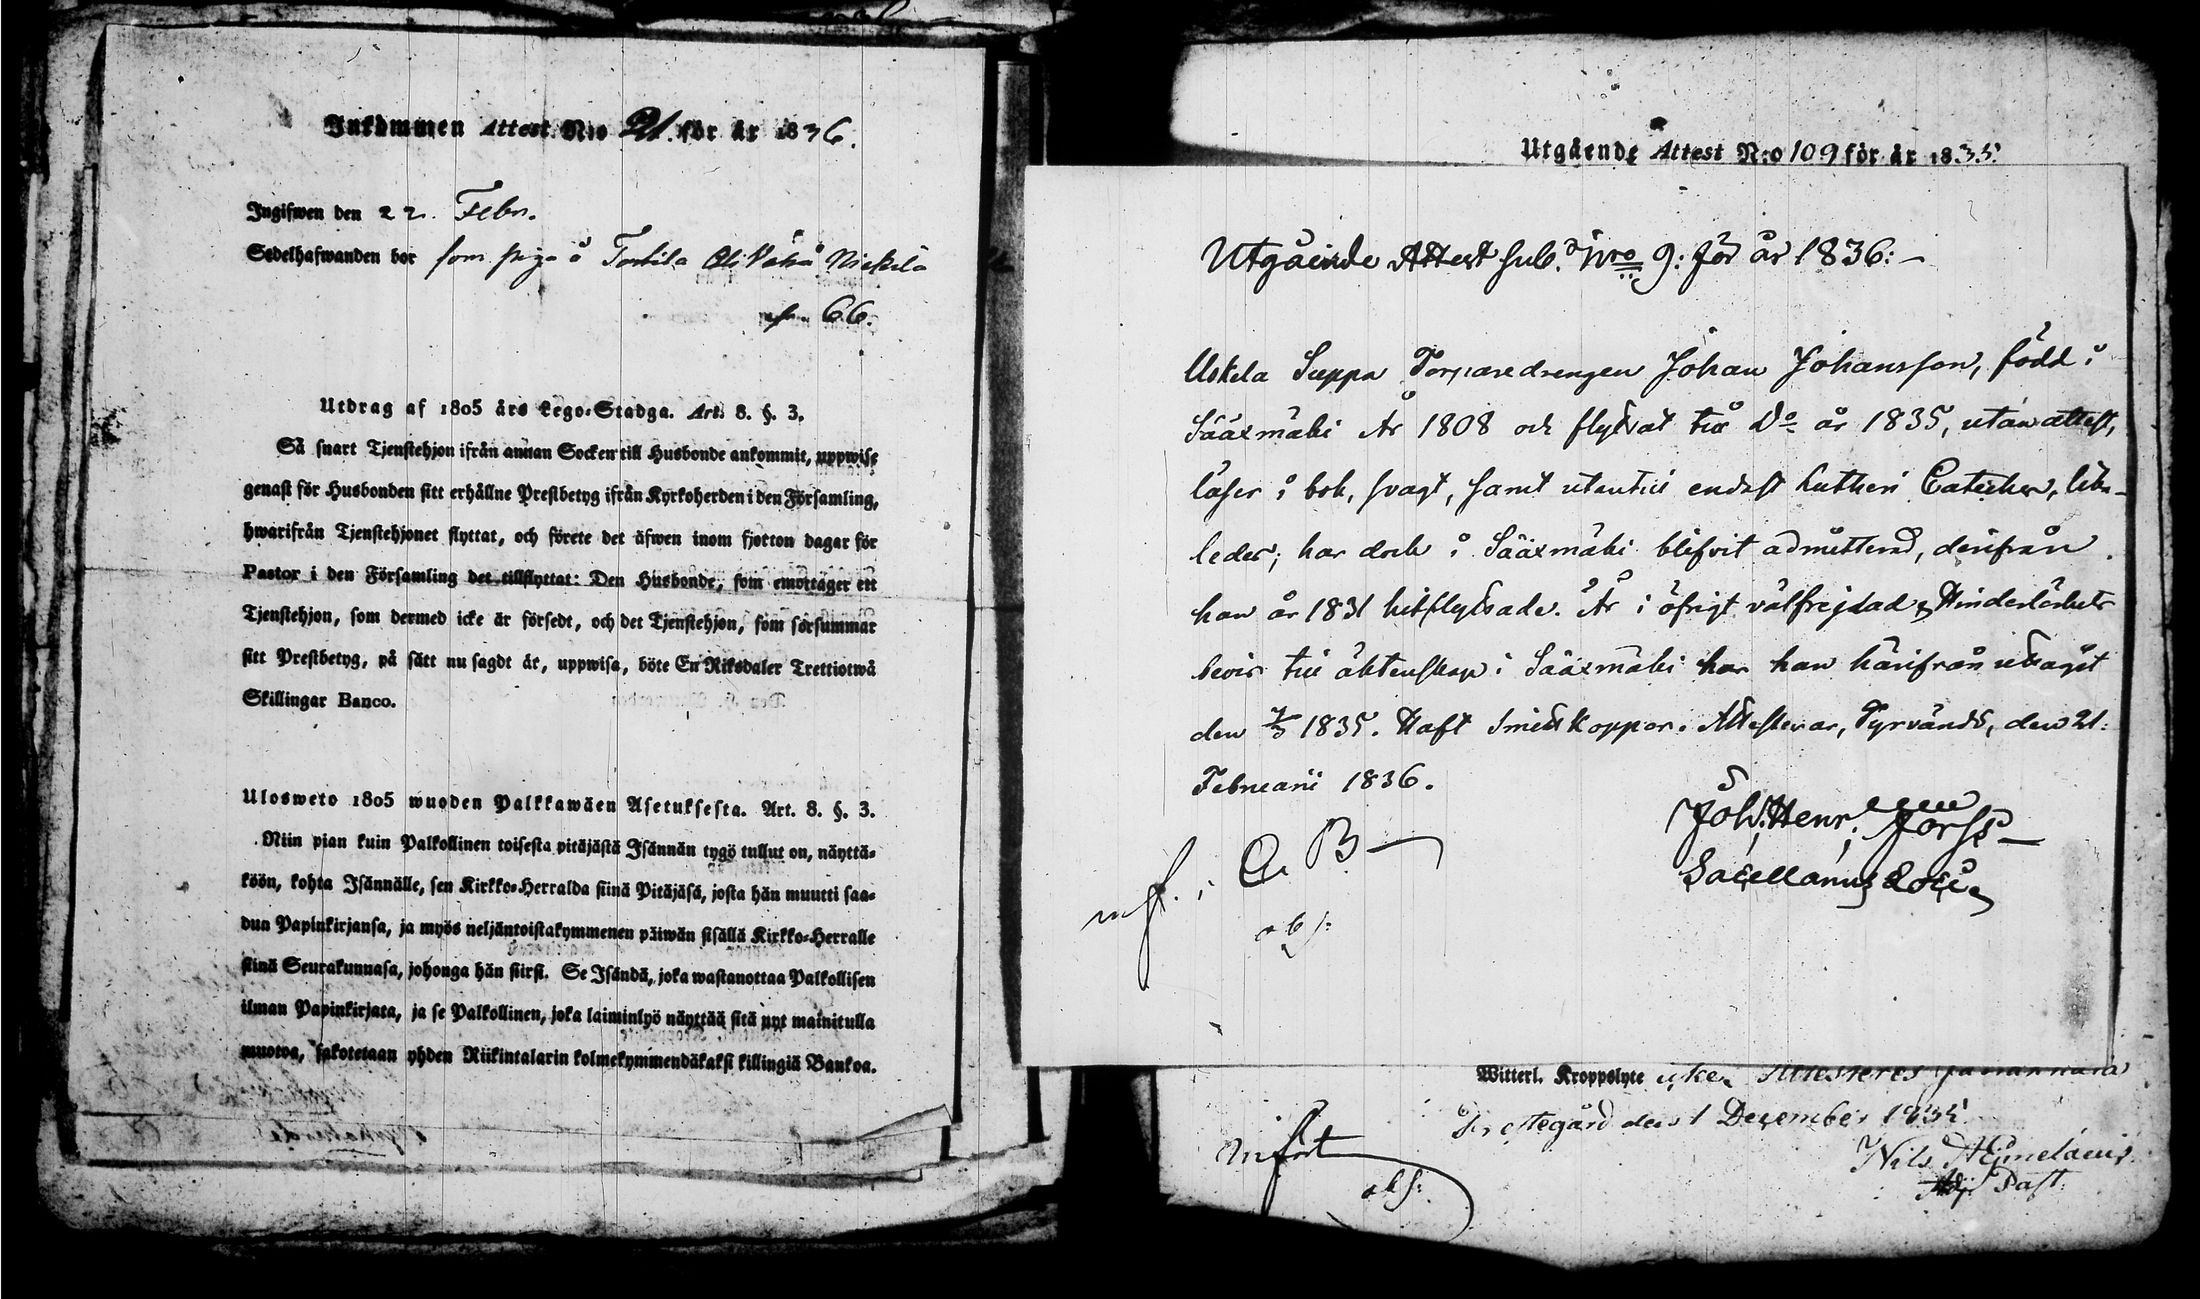 Inkommen Attest N:o 21. för år 1836.
Ingifwen den 22. Febr.
Sedelhafwanden bor som piga å Tortila Ali Vähä Nickilä
p. 66.
Utdrag af 1805 års Lego-Stadga. Art. 8. §. 3.
Så snart Tjenstehjon ifrån annan Socken till Husbonde ankommit, uppwise
genast för Husbonden sitt erhållne Prestbetyg ifrån Kyrkoherden i den Församling,
hwarifrån Tjenstehjonet flyttat, och förete det äfwen inom fjorton dagar för
Pastor i den Församling det tillflyttat: Den Husbonde, som emottager ett
Tjenstehjon, som dermed icke är försedt, och det Tjenstehjon, som försummar
sitt Prestbetyg, på sätt nu sagdt är, uppwisa, böte En Riksdaler Trettiotwå
Skillingar Banco.
Ulosweto 1805 wuoden Palkkawäen Asetuksesta. Art. 8. §. 3.
Niin pian kuin Palkollinen toisesta pitäjästä Isännän tygö tullut on, näyttä-
köön, kohta Isännälle, sen Kirkko-Herralda siinä Pitäjäsä, josta hän muutti saa-
dun Papinkirjansa, ja myös neljäntoistakymmenen päiwän sisällä Kirkko-Herralle
siinä Seurakunnasa, johonga hän siirsi. Se Isändä, joka wastanottaa Palkollisen
ilman Papinkirjata, ja se Palkollinen, joka laiminlyö näyttää sitä nyt mainitulla
muotoa, sakotetaan yhden Riikintalarin kolmekymmendäkaksi killingiä Bankoa.
Utgående Attest N:o 109 för år 1835.
Utgående Attest sub. Nro 9: för år 1836:-
Uskila Suppa Torparedrengen Johan Johansson, född i
Sääxmäki År 1808 och flyttat till Do år 1835, utan attest,
läser i bok, svagt, samt utantill endast Lutheri Cateches,
leder; har dock i Sääxmäki blifvit admitterad, derifrån
han år 1831 hitflyttade. Är i öfrigt välfrejdad, Hinderlöshets
bevis till äktenskap i Sääxmäki har han härifrån uttagit
den 1835. Haft Smittkoppor. Attesterar, Tyrvändö, den 21.
Februarii 1836.
Joh. Henr. Forss
Sacellanus Loci
inf. i A. B
abs:
Witterl. Kroppslyte icke. Attesteres
Prestegård den 1 December 1835.
Nils
Adj. Past.
Infört
abs: